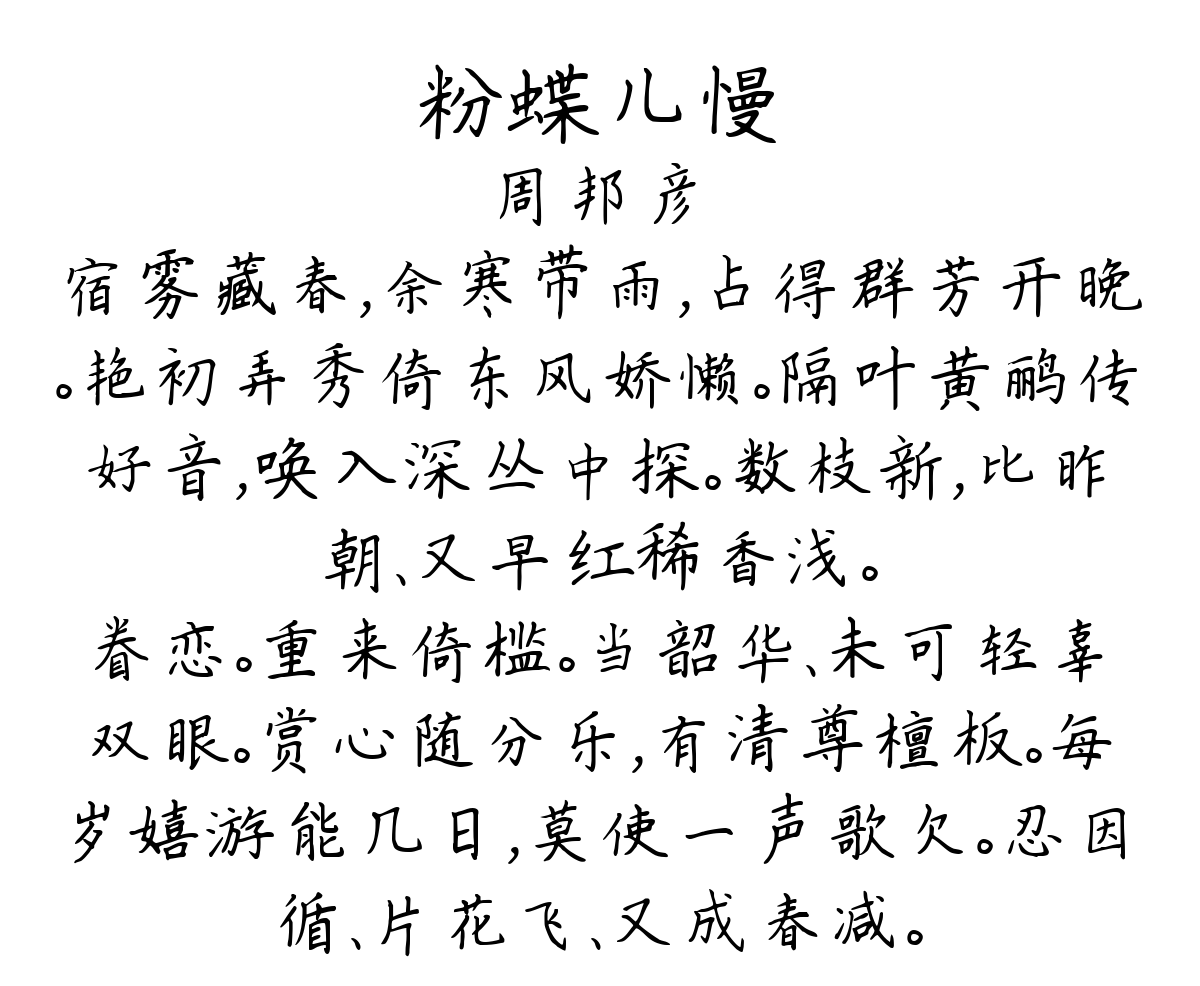 粉蝶儿慢
周邦彦
宿雾藏春,余寒带雨,占得群芳开晚
。艳初弄秀倚东风娇懒。隔叶黄鹂传
好音,唤入深丛中探。数枝新,比昨
朝、又早红稀香浅。
眷恋。重来倚槛。当韶华、未可轻辜
双眼。赏心随分乐,有清尊檀板。每
岁嬉游能几日,莫使一声歌欠。忍因
循、片花飞、又成春减。